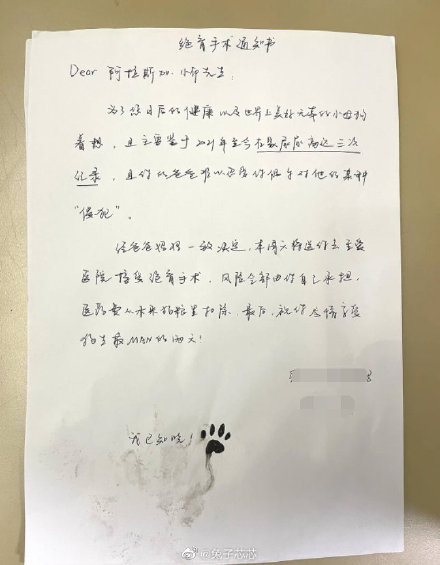 绝育手术通知书
Dear 阿拉斯加·小布先生:
为了您日后的健康以及世界上美好无辜的小母狗
着想,且主要鉴于2021年至今在家尿尿高达三次
记录,且你的爸爸难以忍受你偶尔对他的某种
“侵犯”。
经爸爸妈妈一致决定,本周六将送你去宠爱
医院接受绝育手术,风险全部由你自己承担,
医药费从未来狗粮里扣除。最后,祝你尽情享受
狗生最MAN的两天!
我已知晓!
@兔子芯芯